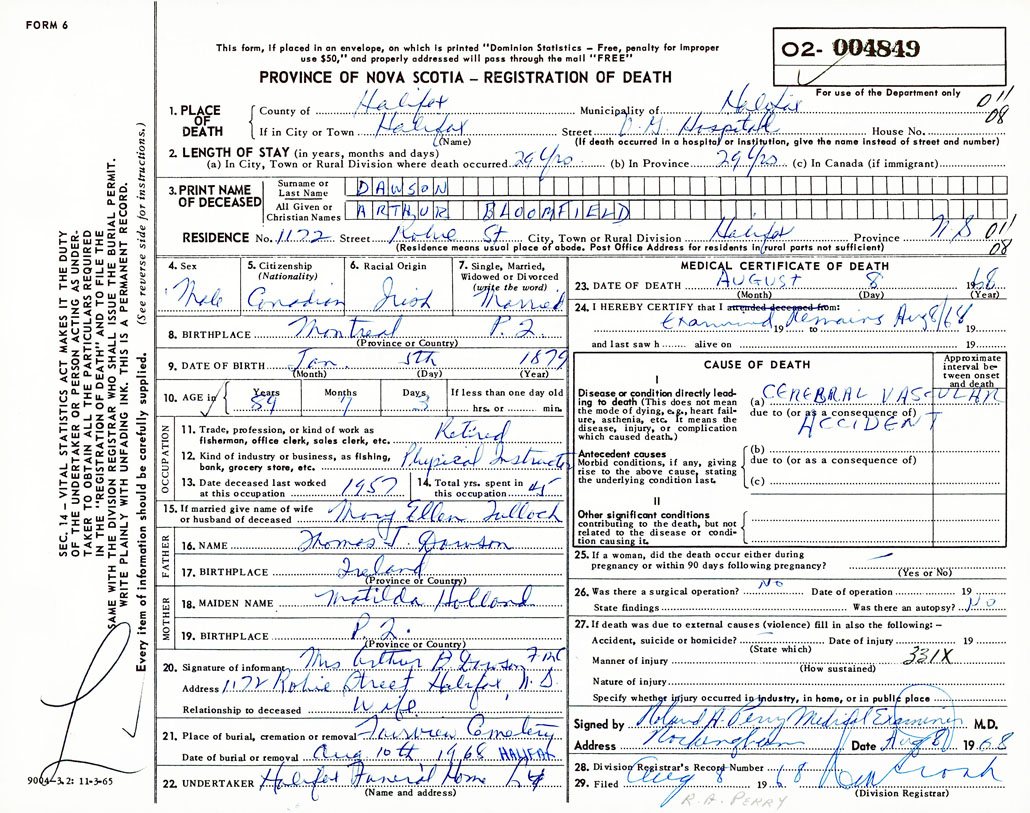 FORM 6
This form, if placed in an envelope, on which is printed "Dominion Statistics – Free, penalty for improper
use $50," and properly addressed will pass through the mail "FREE"
O2- 004849
PROVINCE OF NOVA SCOTIA – REGISTRATION OF DEATH
For use of the Department only
011
08
1. PLACE OF DEATH
County of Halifax Municipality of Halifax
If in City or Town Halifax Street D.G. Hospital House No.
(Name) (If death occurred in a hospital or institution, give the name instead of street and number)
2. LENGTH OF STAY (in years, months and days)
(a) In City, Town or Rural Division where death occurred 29 Yrs (b) In Province 29 Yrs (c) In Canada (if immigrant)
3. PRINT NAME OF DECEASED
Surname or Last Name DAWSON
All Given or Christian Names ARTHUR BLOOMFIELD
RESIDENCE No. 1172 Street Robie St City, Town or Rural Division Halifax Province N S 011
(Residence means usual place of abode. Post Office Address for residents in rural parts not sufficient) 08
4. Sex
Male
5. Citizenship
(Nationality)
Canadian
6. Racial Origin
Irish
7. Single, Married,
Widowed or Divorced
(write the word)
Married
8. BIRTHPLACE Montreal P.Q.
(Province or Country)
9. DATE OF BIRTH Jan. 5th 1879
(Month) (Day) (Year)
10. AGE in Years Months Days If less than one day old
89 7 3 hrs. or min.
OCCUPATION
11. Trade, profession, or kind of work as
fisherman, office clerk, sales clerk, etc. Retired
12. Kind of industry or business, as fishing,
bank, grocery store, etc. Physical Instructor
13. Date deceased last worked
at this occupation 1957
14. Total yrs. spent in
this occupation 45
15. If married give name of wife
or husband of deceased Mary Ellen Tulloch
FATHER
16. NAME Thomas J. Dawson
17. BIRTHPLACE Ireland
(Province or Country)
MOTHER
18. MAIDEN NAME Matilda Holland
19. BIRTHPLACE P.Q.
(Province or Country)
20. Signature of informant Mrs Arthur B Dawson
Address 1172 Robie Street Halifax N.S.
Relationship to deceased Wife
21. Place of burial, cremation or removal Fairview Cemetery
Date of burial or removal Aug 10th 1968 HALIFAX
22. UNDERTAKER Halifax Funeral Home
(Name and address)
MEDICAL CERTIFICATE OF DEATH
23. DATE OF DEATH AUGUST 8 1968
(Month) (Day) (Year)
24. I HEREBY CERTIFY that I attended deceased from:
Examined Remains Aug 8/68
19 to
and last saw h alive on 19
CAUSE OF DEATH
Approximate
interval be-
tween onset
and death
I
Disease or condition directly lead-
ing to death (This does not mean
the mode of dying, e.g., heart fail-
ure, asthenia, etc. It means the
disease, injury, or complication
which caused death.)
(a) CEREBRAL VASCULAR
due to (or as a consequence of)
ACCIDENT
Antecedent causes
Morbid conditions, if any, giving
rise to the above cause, stating
the underlying condition last.
(b)
due to (or as a consequence of)
(c)
II
Other significant conditions
contributing to the death, but not
related to the disease or condi-
tion causing it.
25. If a woman, did the death occur either during
pregnancy or within 90 days following pregnancy? –
(Yes or No)
26. Was there a surgical operation? No Date of operation 19
State findings Was there an autopsy? No
27. If death was due to external causes (violence) fill in also the following: –
Accident, suicide or homicide? Date of injury 19
(State which)
Manner of injury 331X
(How sustained)
Nature of injury
Specify whether injury occurred in industry, in home, or in public place
Signed by Roland A. Perry Medical Examiner M.D.
Address Rockingham Date Aug 8 1968
28. Division Registrar's Record Number
29. Filed Aug 8 1968
(Division Registrar)
R.A. PERRY
SEC. 14 – VITAL STATISTICS ACT MAKES IT THE DUTY
OF THE UNDERTAKER OR PERSON ACTING AS UNDER-
TAKER TO OBTAIN ALL THE PARTICULARS REQUIRED
IN THE "REGISTRATION OF DEATH" AND TO FILE THE
SAME WITH THE DIVISION REGISTRAR WHO SHALL ISSUE THE BURIAL PERMIT.
WRITE PLAINLY WITH UNFADING INK. THIS IS A PERMANENT RECORD.
Every item of information should be carefully supplied. (See reverse side for instructions.)
9004-3.2: 11-3-65